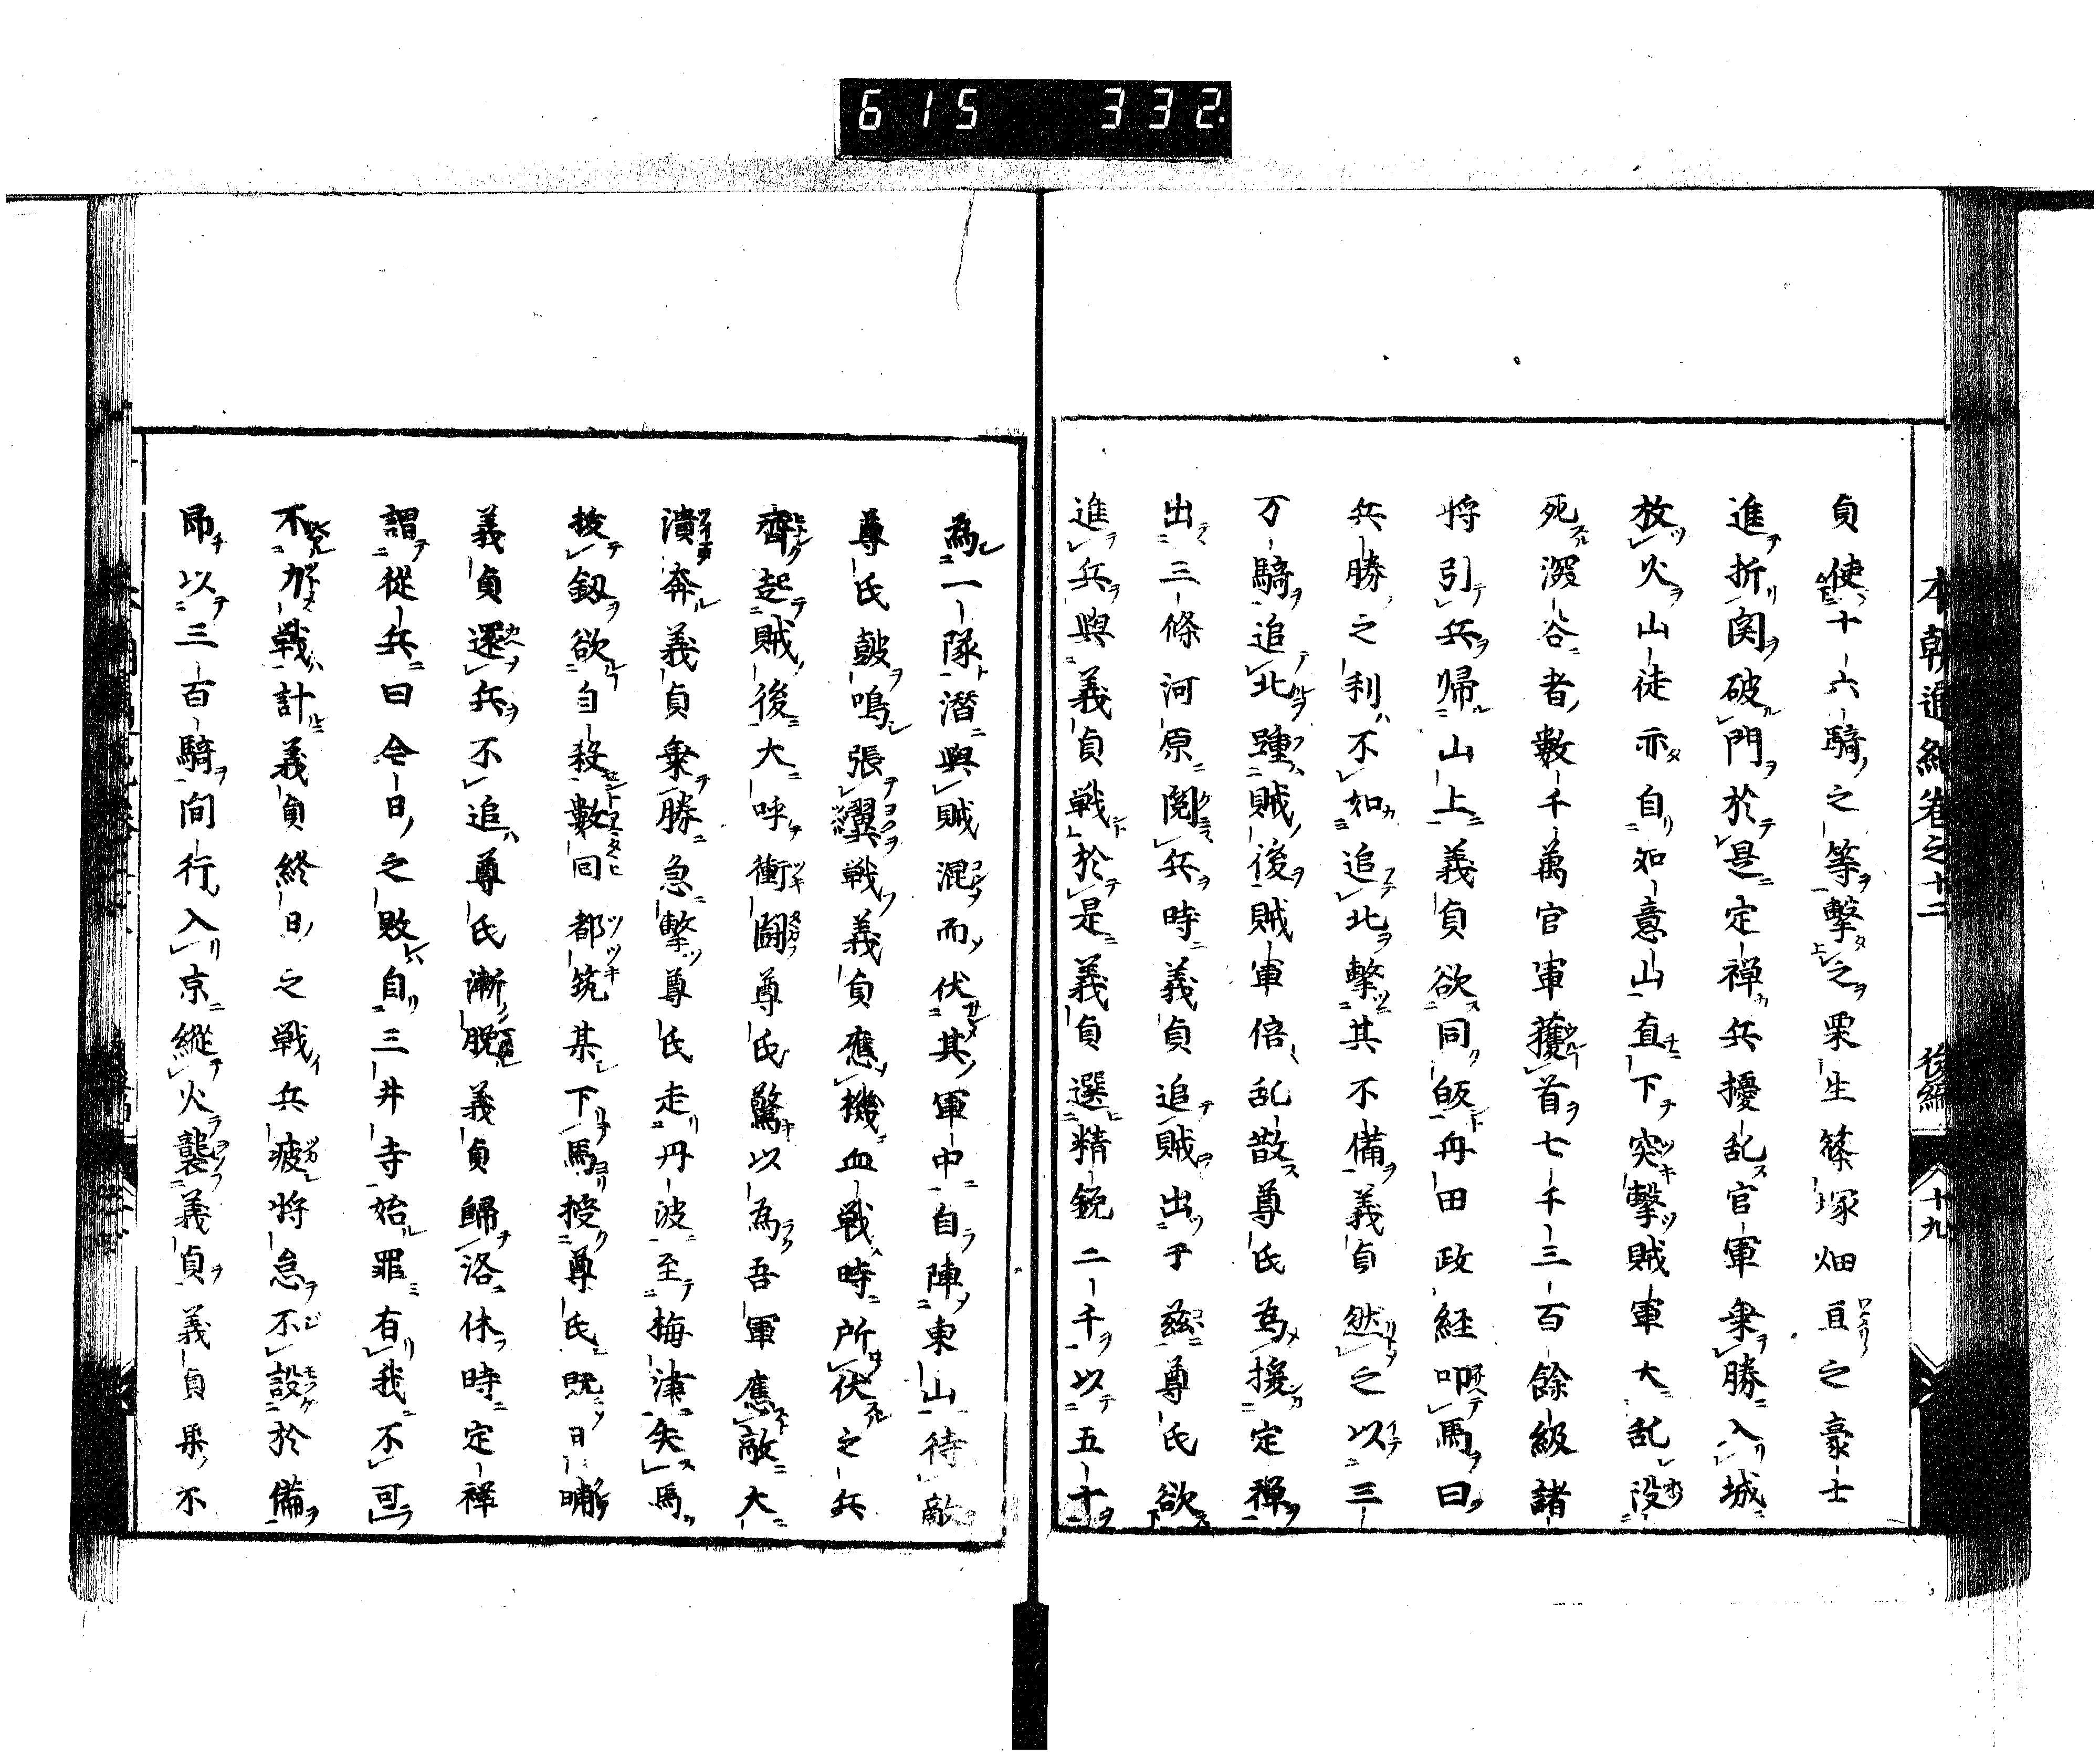 615 332.
本朝通紀卷之十二 後編 十九
貞使十六騎之等擊之栗生篠塚畑亘之豪士
進折関破門於是定禅兵擾乱官軍乗勝入城
放火山徒亦自如意山直下突擊賊軍大乱没
死深谷者数千萬官軍獲首七千三百餘級諸
将引兵帰山上義貞欲同皈舟田政経叩馬曰
兵勝之利不如追北擊其不備義貞然之以三
万騎追北踵賊後賊軍倍乱散尊氏為援定禅
出三條河原閲兵時義貞追賊出于茲尊氏欲
進兵與義貞戦於是義貞選精鋭二千以五十
為一隊潜與賊混而伏其軍中自陣東山待敵
尊氏皷鳴張翼戦義貞應機血戦時所伏之兵
齊起賊後大呼衝闘尊氏驚以為吾軍應敵大
潰奔義貞乗勝急擊尊氏走丹波至梅津失馬
抜釼欲自殺數回都筑某下馬授尊氏既日晡
義貞還兵不追尊氏漸脱義貞歸洛休時定禅
謂從兵曰今日之敗自三井寺始罪有我不可
不力戦計義貞終日之戦兵疲将怠不設於備
即以三百騎間行入京縱火襲義貞義貞果不